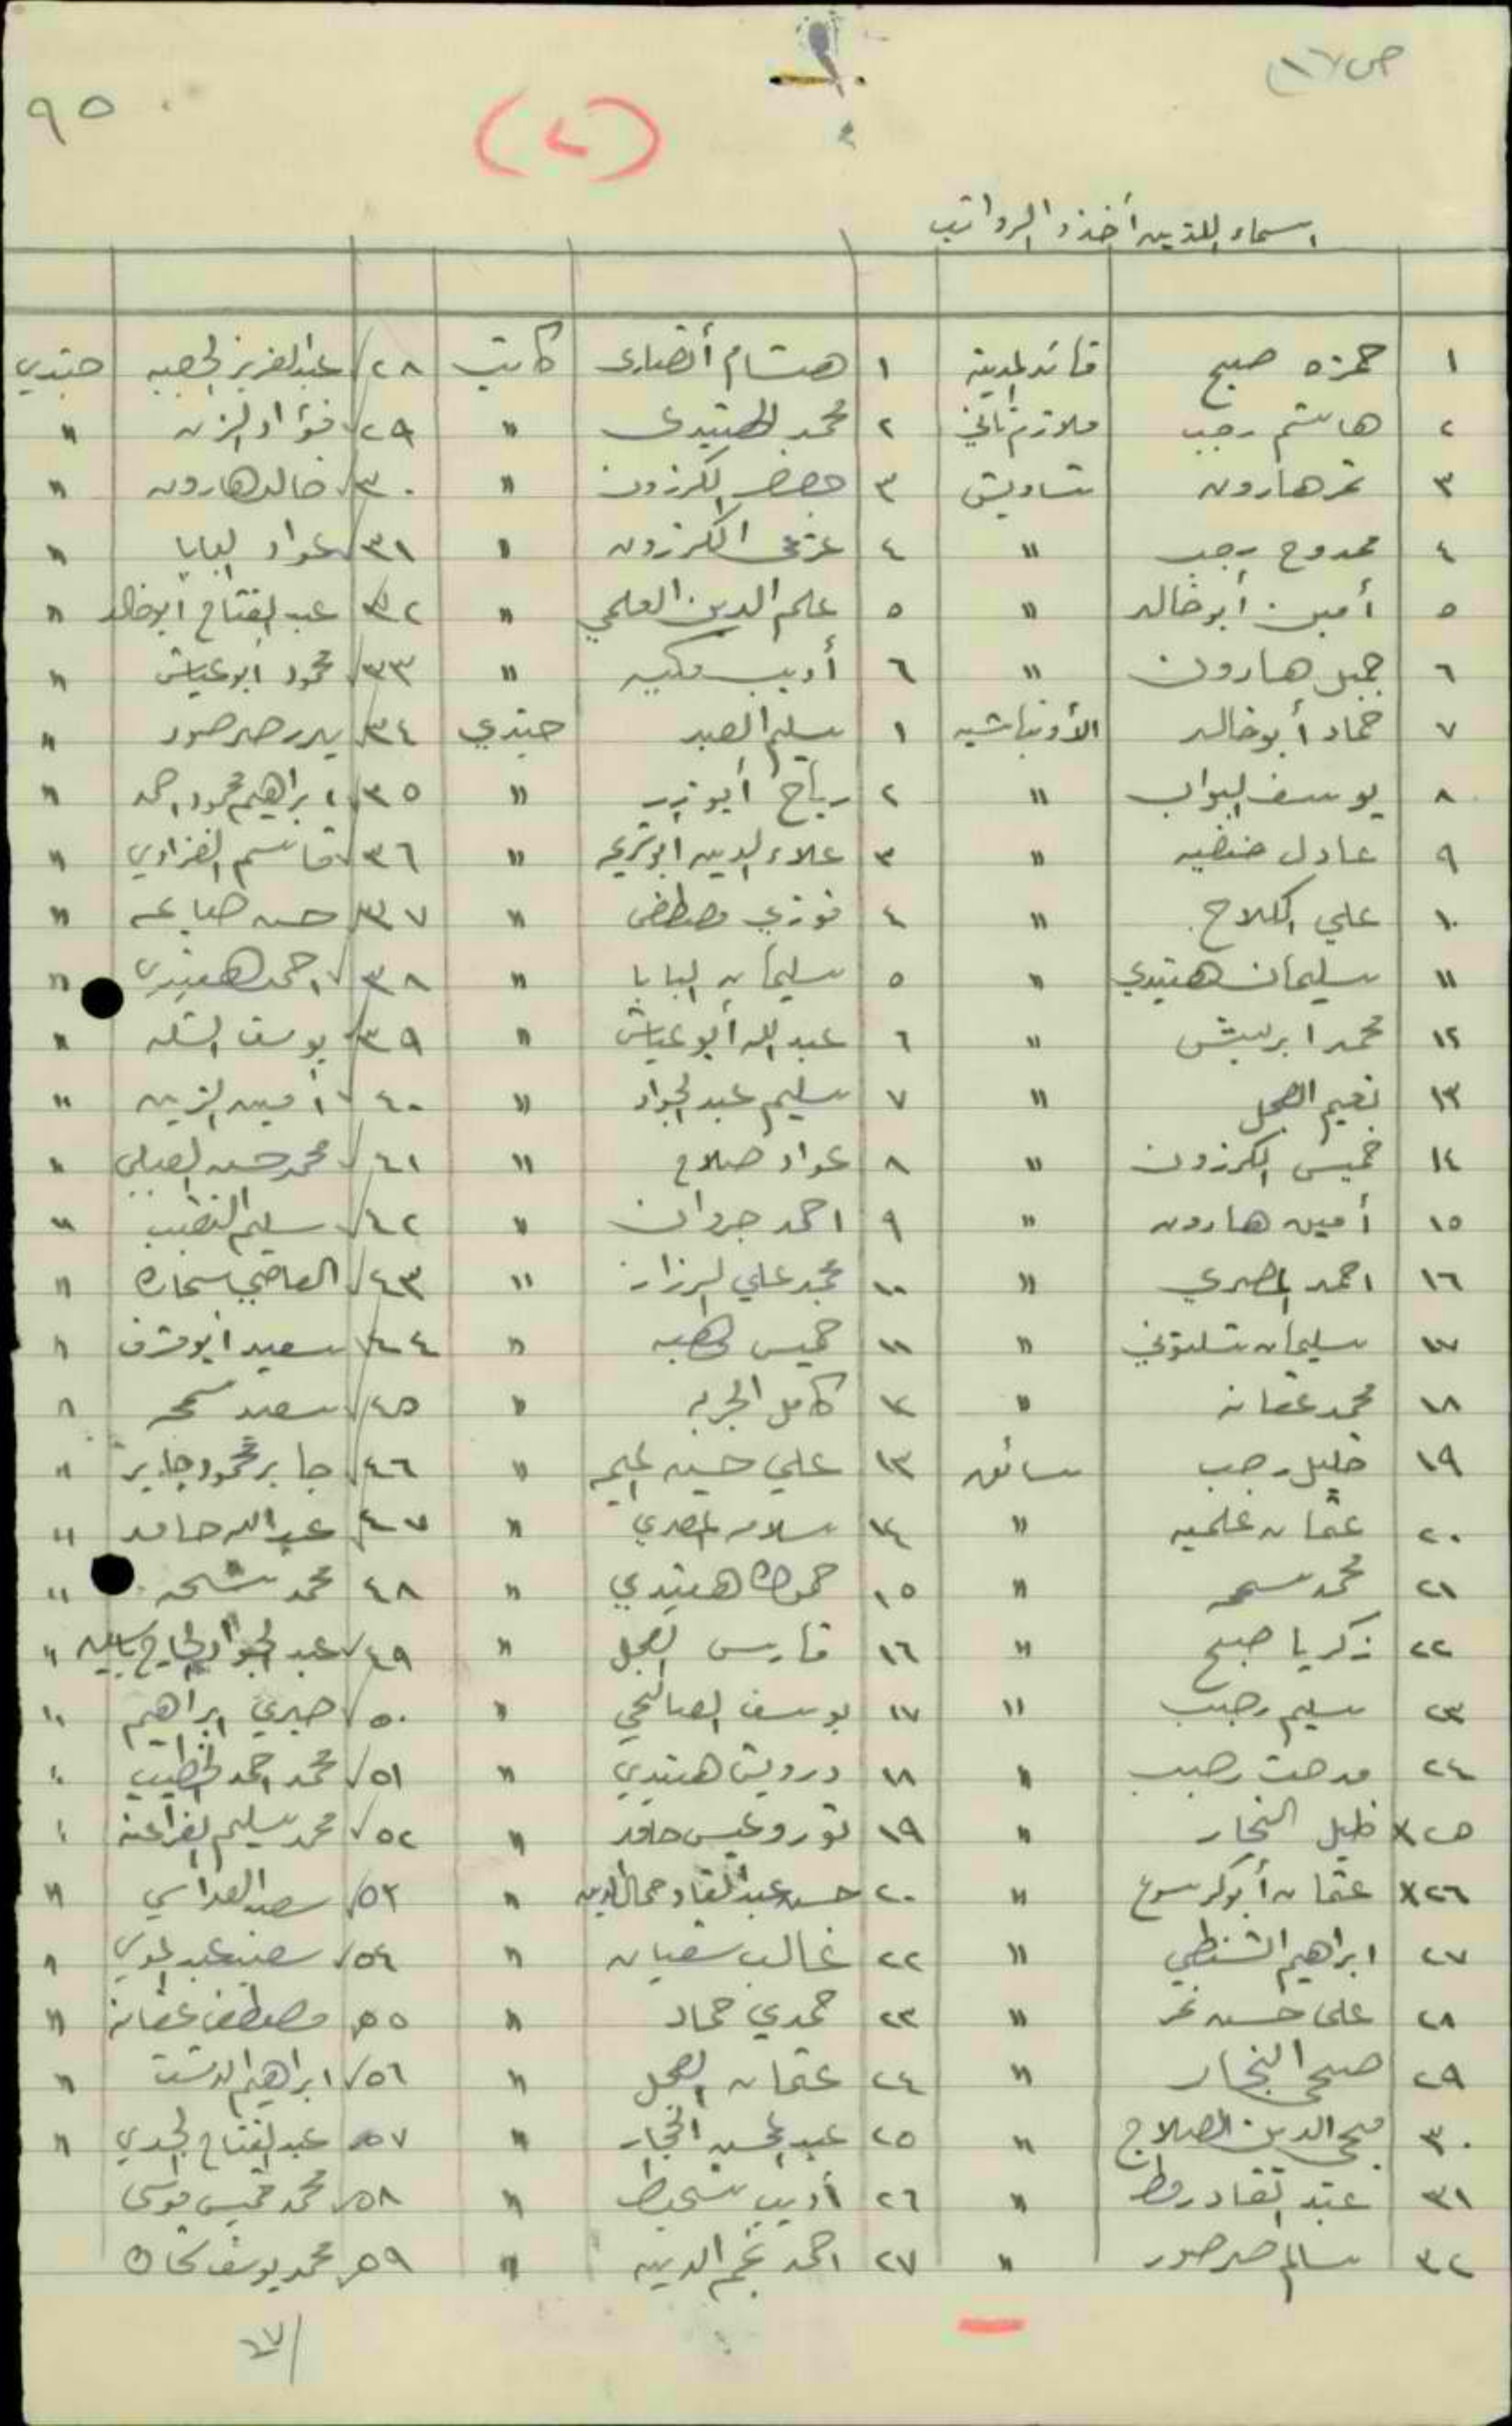 ص ١٧
٩٥
(٢)
اسماء اللذين أخذوا الرواتب
١ حمزه صبح قائد المدينة ١ هشام أنصاري كاتب ٢٨ عبد العزيز جندي
٢ هاشم رجب ملازم ثاني ٢ محمد الهنيدي " ٢٩ فؤاد الزين "
٣ نمر هارون شاويش ٣ خضر الكرزون " ٣٠ خالد هارون "
٤ ممدوح رجب " ٤ عزمي الكرزون " ٣١ عواد البابا "
٥ أمين أبو خالد " ٥ علم الدين العلمي " ٣٢ عبد الفتاح ابو خالد "
٦ جميل هارون " ٦ أديب مكيه " ٣٣ محمود ابو عياش "
٧ حماد أبو خالد الأونباشيه ١ سليم العبد جندي ٣٤ بدر صرصور "
٨ يوسف البواب " ٢ رباح أبو " ٣٥ ابراهيم محمود احمد "
٩ عادل " ٣ علاء الدين ابو " ٣٦ قاسم الغزاوي "
١٠ علي الكلاح " ٤ فوزي مصطفى " ٣٧ حسن "
١١ سليمان هنيدي " ٥ سليمان البابا " ٣٨ احمد هنيدي "
١٢ محمد ابريش " ٦ عبد الله أبو عياش " ٣٩ يوسف "
١٣ نعيم العجل " ٧ سليم عبد الجواد " ٤٠ أمين الزين "
١٤ خميس الكرزون " ٨ عواد صلاح " ٤١ محمد حسن "
١٥ أمين هارون " ٩ احمد جروان " ٤٢ سليم النقيب "
١٦ احمد المصري " ١٠ محمد علي " ٤٣ "
١٧ سليمان شلتوني " ١١ خميس " ٤٤ سعيد أبو شرف "
١٨ محمد عفانه " ١٢ كامل الجربه " ٤٥ سعيد سمحه "
١٩ خليل رجب سائق ١٣ علي حسين " ٤٦ جابر محمود جابر "
٢٠ عثمان علميه " ١٤ سلامه المصري " ٤٧ عبد الله حامد "
٢١ محمد سمحه " ١٥ حموده هنيدي " ٤٨ محمد شحه "
٢٢ زكريا صبح " ١٦ فارس العجل " ٤٩ عبد الجواد الحاج ياسين "
٢٣ سليم رجب " ١٧ يوسف الصالحي " ٥٠ صبري ابراهيم "
٢٤ مدحت رجب " ١٨ درويش هنيدي " ٥١ محمد احمد الخطيب "
٢٥ x خليل النجار " ١٩ حامد " ٥٢ محمد سليم الفراعنة "
٢٦ x عثمان أبو كرسوع " ٢٠ حسن عبد القادر جمال الدين " ٥٣ سعيد "
٢٧ ابراهيم الشنطي " ٢٢ غالب شعبان " ٥٤ "
٢٨ علي حسن نمر " ٢٣ حمدي حماد " ٥٥ مصطفى عفانه "
٢٩ صبحي النجار " ٢٤ عثمان العجل " ٥٦ ابراهيم "
٣٠ محي الدين الصلاح " ٢٥ عبد المحسن النجار " ٥٧ عبد الفتاح الجدي "
٣١ عبد القادر مطر " ٢٦ أديب " ٥٨ محمد خميس موسى
٣٢ سالم صرصور " ٢٧ احمد نجم الدين " ٥٩ محمد يوسف